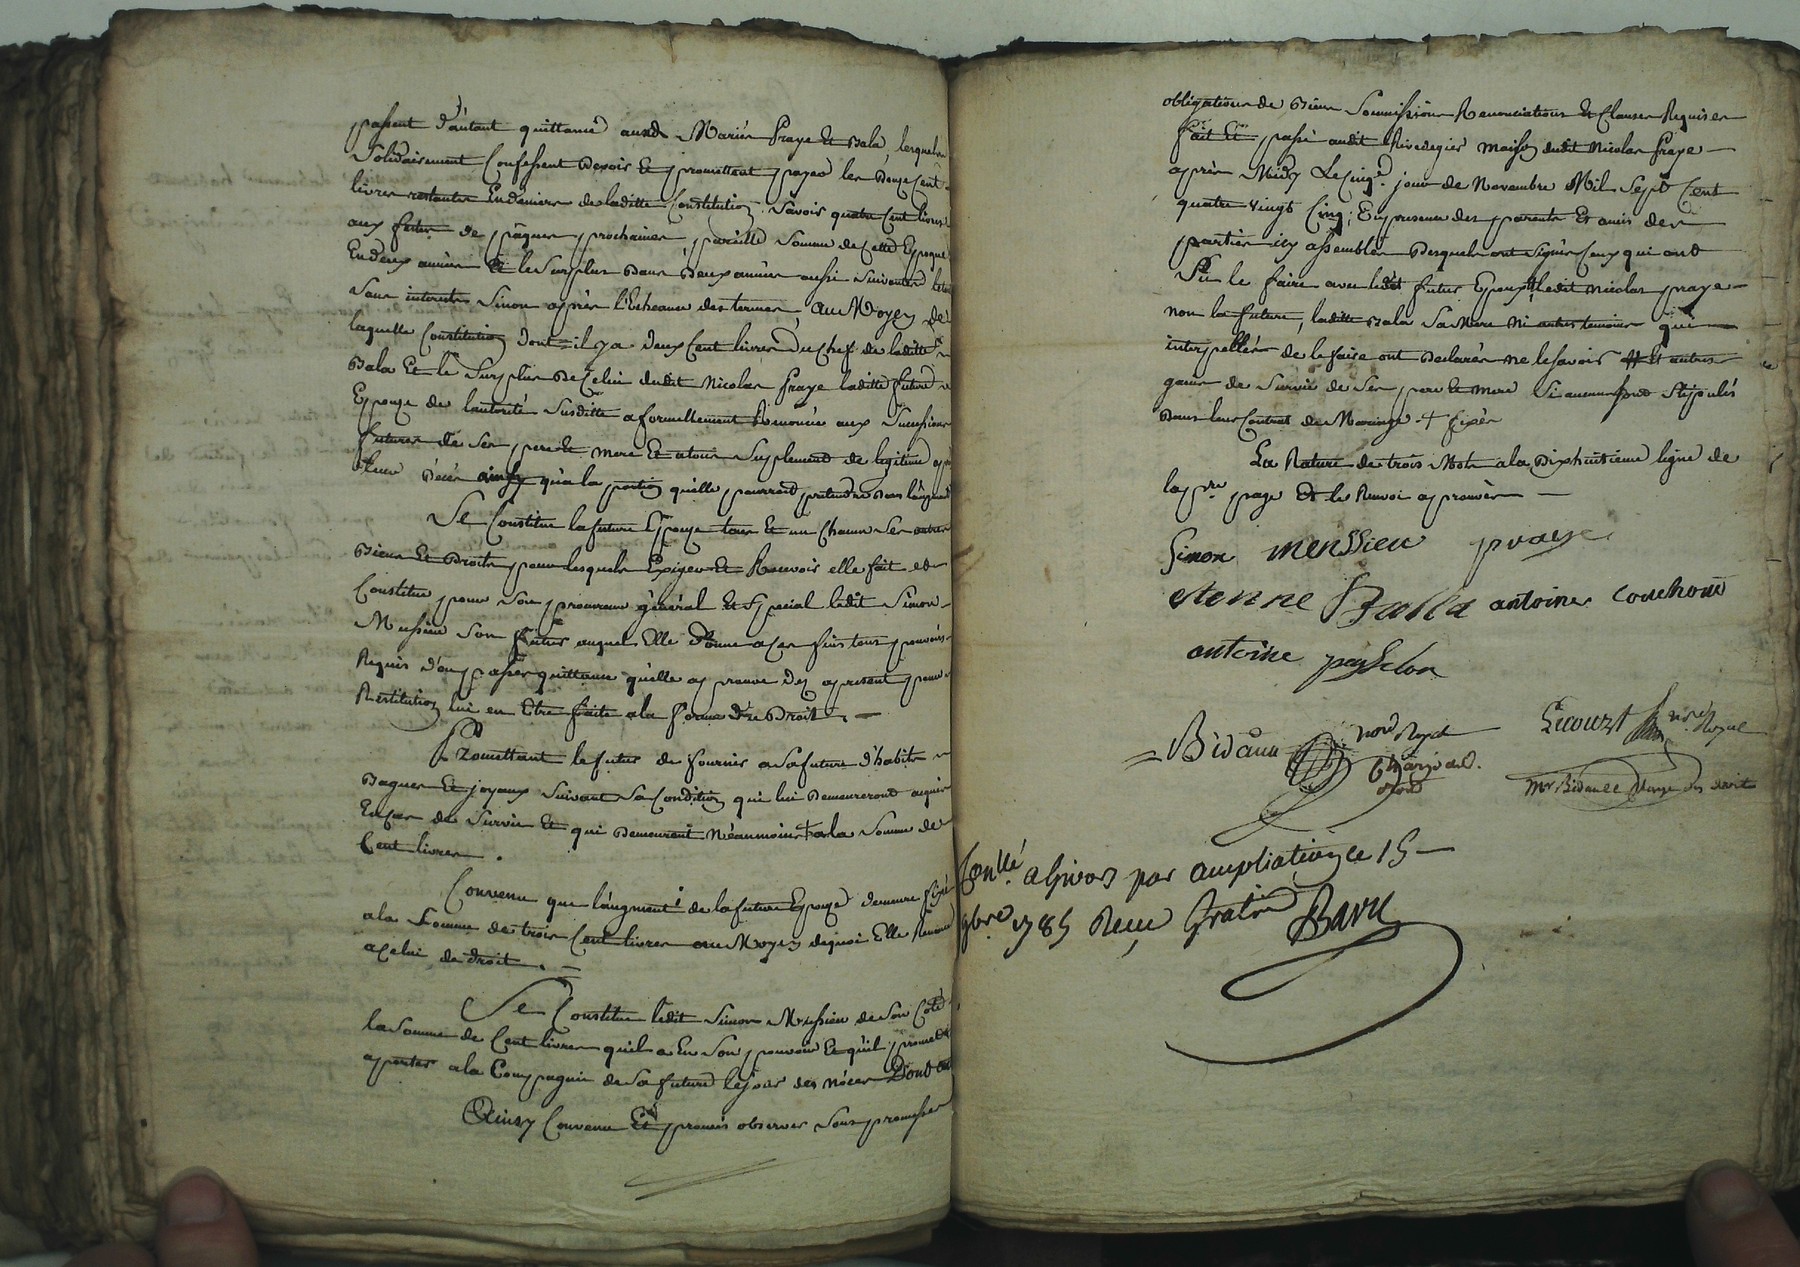 passent d'autant quittance auxd. Mariés Praye et Bala, lesquels
Solidairement Confessent devoir et promettent payer les douze Cent
livres restantes En deniers de laditte Constitution Savoir quatre Cent livres
aux fettes de pâques prochaines, pareille Somme de Cette Epoque
En deux années et le Surplus dans deux années aussi Suivantes le tout
Sans interests Sinon après l'Echeance des termes, Au Moyen de
laquelle Constitution dont il y a deux Cent livres du Chef de laditte
Bala Et le Surplus de Celui dudit Nicolas Praye laditte future
Epouze de l'autorité Susditte a formellement Renoncée aux Successions
futures de Ses pere et mere Et a tous Suplement de legitime après
leurs décès ainsy qu'a la portion qu'elle pourroit pretendre dans l'augment
Se Constitue la future Epouze tous Et un Chacun Ses autres
Biens Et Droits pour lesquels Exiger Et Recevoir elle fait et
Constitue pour Son procureur général Et Special ledit Simon
Messieu Son futur auquel Elle donne a ces fins tous pouvoirs
Requis d'en passer quittance qu'elle approuve des a present pour
Restitution lui en Etre faite a la forme de Droit. —
Promettant le futur de fournir a Sa future d'habits
Bagues Et joyaux Suivant Sa Condition qui lui demeureront acquis
En Cas de Survie Et qui demeurent Néanmoins + a la Somme de
Cent livres.
Convenu que l'augment de la future Epouze demeure fixé
a la Somme de trois Cent livres au Moyen de quoi Elle Renonce
a Celui de droit. =
Se Constitue ledit Simon Messieu de Son Coté
la Somme de Cent livres qu'il a En Son pouvoir Et qu'il promet
apporter a la Compagnie de Sa future le jour des nôces Dont acte
Ainsy Convenu Et promis observer Sous promesses
obligations de Biens Soumissions Renonciations Et Clauses Requises
fait Et passé audit Rivedegier maison dudit Nicolas Praye —
après Midy Le cinq.e jour de Novembre Mil Sept Cent
quatre vingt Cinq; En presence des parents Et amis des
parties icy assemblés Desquels ont Signés Ceux qui ont
Sçu le faire avec ledit futur Epoux, ledit Nicolas praye
non la future, laditte Bala Sa Mere ni autres temoins qui —
interpellés de le faire ont declarés ne le savoir # Et autres
gains de Survie de Ses pere et mere Si aucuns sont Stipulés
dans leur Contrat de Mariage + fixés
La Rature de trois Mots a la dixhuitieme ligne de
la p.re page Et le Renvoi approuvés —
Simon menssieu praye
etienne Balla antoine couchoud
antoine paysselon
= Bidaud not.e Royal
Chargé de l'expéd
Lecourt not.re Royal
M.e Bidault
Con.lé a Givors par ampliation ce 15 —
9bre 1785 Reçu Gratis